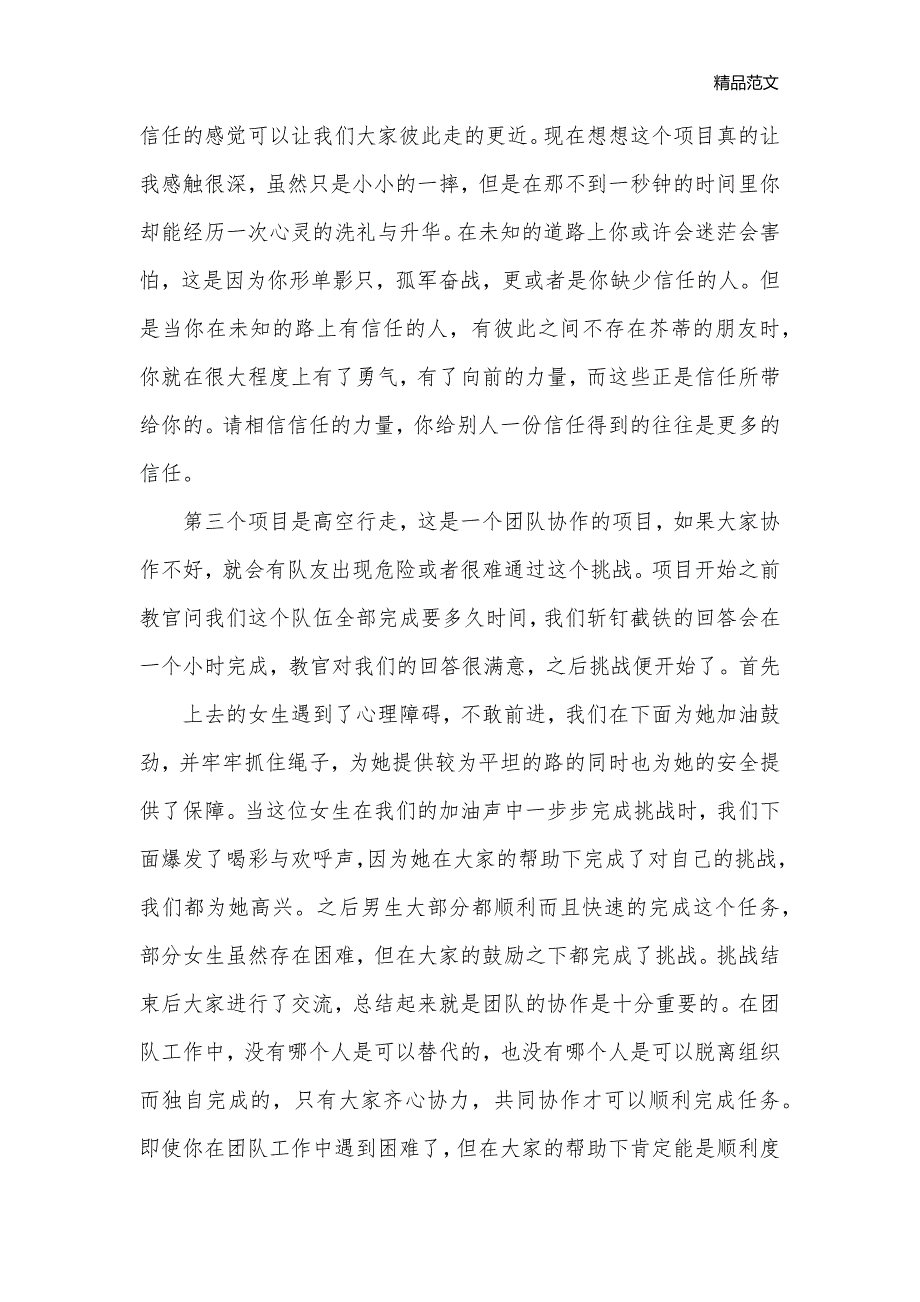 精品范文
信任的感觉可以让我们大家彼此走的更近。现在想想这个项目真的让
我感触很深，虽然只是小小的一摔，但是在那不到一秒钟的时间里你
却能经历一次心灵的洗礼与升华。在未知的道路上你或许会迷茫会害
怕，这是因为你形单影只，孤军奋战，更或者是你缺少信任的人。但
是当你在未知的路上有信任的人，有彼此之间不存在芥蒂的朋友时，
你就在很大程度上有了勇气，有了向前的力量，而这些正是信任所带
给你的。请相信信任的力量，你给别人一份信任得到的往往是更多的
信任。
第三个项目是高空行走，这是一个团队协作的项目，如果大家协
作不好，就会有队友出现危险或者很难通过这个挑战。项目开始之前
教官问我们这个队伍全部完成要多久时间，我们斩钉截铁的回答会在
一个小时完成，教官对我们的回答很满意，之后挑战便开始了。首先
上去的女生遇到了心理障碍，不敢前进，我们在下面为她加油鼓
劲，并牢牢抓住绳子，为她提供较为平坦的路的同时也为她的安全提
供了保障。当这位女生在我们的加油声中一步步完成挑战时，我们下
面爆发了喝彩与欢呼声，因为她在大家的帮助下完成了对自己的挑战，
我们都为她高兴。之后男生大部分都顺利而且快速的完成这个任务，
部分女生虽然存在困难，但在大家的鼓励之下都完成了挑战。挑战结
束后大家进行了交流，总结起来就是团队的协作是十分重要的。在团
队工作中，没有哪个人是可以替代的，也没有哪个人是可以脱离组织
而独自完成的，只有大家齐心协力，共同协作才可以顺利完成任务。
即使你在团队工作中遇到困难了，但在大家的帮助下肯定能是顺利度